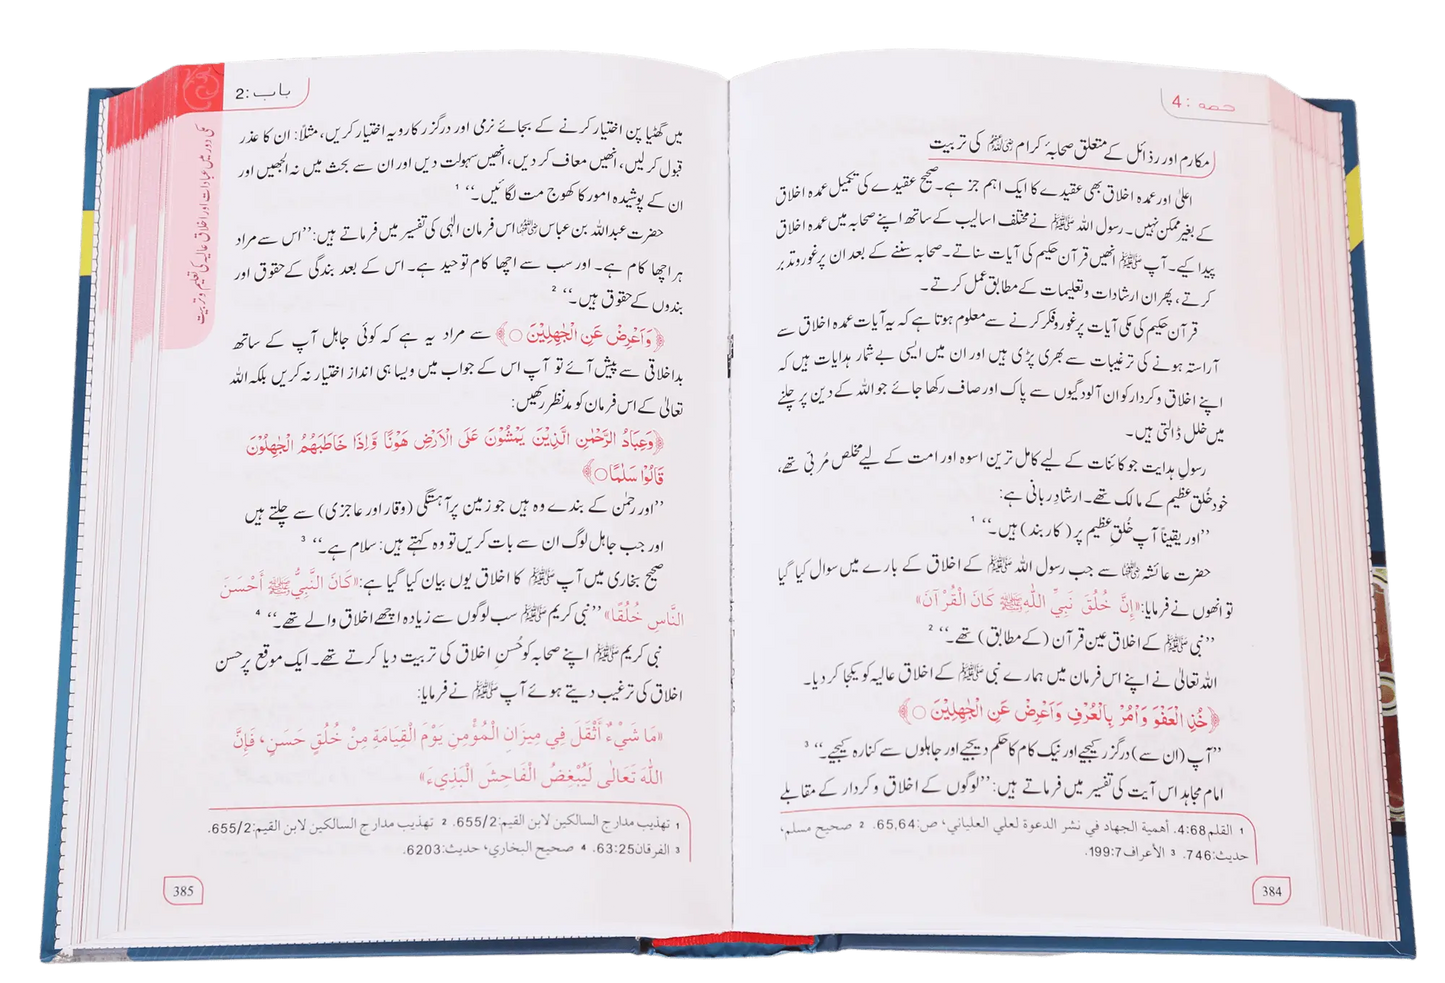 حصہ : 4
مکارم اور رذائل کے متعلق صحابۂ کرام رضی اللہ عنہم کی تربیت
اعلیٰ اور عمدہ اخلاق بھی عقیدے کا ایک اہم جز ہے۔ صحیح عقیدے کی تکمیل عمدہ اخلاق
کے بغیر ممکن نہیں۔ رسول اللہ ﷺ نے مختلف اسالیب کے ساتھ اپنے صحابہ میں عمدہ اخلاق
پیدا کیے۔ آپ ﷺ انھیں قرآن حکیم کی آیات سناتے۔ صحابہ سننے کے بعد ان پر غور و تدبر
کرتے، پھر ان ارشادات و تعلیمات کے مطابق عمل کرتے۔
قرآن حکیم کی مکی آیات پر غور و فکر کرنے سے معلوم ہوتا ہے کہ یہ آیات عمدہ اخلاق سے
آراستہ ہونے کی ترغیبات سے بھری پڑی ہیں اور ان میں ایسی بے شمار ہدایات ہیں کہ
اپنے اخلاق و کردار کو ان آلودگیوں سے پاک اور صاف رکھا جائے جو اللہ کے دین پر چلنے
میں خلل ڈالتی ہیں۔
رسولِ ہدایت جو کائنات کے لیے کامل ترین اسوہ اور امت کے لیے مخلص مُربی تھے،
خود خُلق عظیم کے مالک تھے۔ ارشادِ ربانی ہے:
’’اور یقیناً آپ خُلقِ عظیم پر (کاربند) ہیں۔‘‘ 1
حضرت عائشہ رضی اللہ عنہا سے جب رسول اللہ ﷺ کے اخلاق کے بارے میں سوال کیا گیا
تو انھوں نے فرمایا: «إِنَّ خُلُقَ نَبِيِّ اللّٰهِ ﷺ كَانَ الْقُرْآنَ»
’’نبی ﷺ کے اخلاق عین قرآن (کے مطابق) تھے۔‘‘ 2
اللہ تعالیٰ نے اپنے اس فرمان میں ہمارے نبی ﷺ کے اخلاق عالیہ کو یکجا کر دیا۔
﴿خُذِ الْعَفْوَ وَاْمُرْ بِالْعُرْفِ وَاَعْرِضْ عَنِ الْجٰهِلِيْنَ ○﴾
’’آپ (ان سے) درگزر کیجیے اور نیک کام کا حکم دیجیے اور جاہلوں سے کنارہ کیجیے۔‘‘ 3
امام مجاہد اس آیت کی تفسیر میں فرماتے ہیں: ’’لوگوں کے اخلاق و کردار کے مقابلے
1 القلم 4:68. أهمية الجهاد في نشر الدعوة لعلي العلياني، ص: 65,64. 2 صحيح مسلم،
حديث: 746. 3 الأعراف 199:7.
384
باب : 2
مکی دور میں عبادات اور اخلاق عالیہ کی تعلیم و تربیت
میں گھٹیا پن اختیار کرنے کے بجائے نرمی اور درگزر کا رویہ اختیار کریں، مثلاً: ان کا عذر
قبول کر لیں، انھیں معاف کر دیں، انھیں سہولت دیں اور ان سے بحث میں نہ الجھیں اور
ان کے پوشیدہ امور کا کھوج مت لگائیں۔‘‘ 1
حضرت عبداللہ بن عباس رضی اللہ عنہما اس فرمان الٰہی کی تفسیر میں فرماتے ہیں: ’’اس سے مراد
ہر اچھا کام ہے۔ اور سب سے اچھا کام توحید ہے۔ اس کے بعد بندگی کے حقوق اور
بندوں کے حقوق ہیں۔‘‘ 2
﴿وَاَعْرِضْ عَنِ الْجٰهِلِيْنَ ○﴾ سے مراد یہ ہے کہ کوئی جاہل آپ کے ساتھ
بداخلاقی سے پیش آئے تو آپ اس کے جواب میں ویسا ہی انداز اختیار نہ کریں بلکہ اللہ
تعالیٰ کے اس فرمان کو مدنظر رکھیں:
﴿وَعِبَادُ الرَّحْمٰنِ الَّذِيْنَ يَمْشُوْنَ عَلَى الْاَرْضِ هَوْنًا وَّاِذَا خَاطَبَهُمُ الْجٰهِلُوْنَ
قَالُوْا سَلٰمًا ○﴾
’’اور رحمٰن کے بندے وہ ہیں جو زمین پر آہستگی (وقار اور عاجزی) سے چلتے ہیں
اور جب جاہل لوگ ان سے بات کریں تو وہ کہتے ہیں: سلام ہے۔‘‘ 3
صحیح بخاری میں آپ ﷺ کا اخلاق یوں بیان کیا گیا ہے: «كَانَ النَّبِيُّ ﷺ أَحْسَنَ
النَّاسِ خُلُقًا» ’’نبی کریم ﷺ سب لوگوں سے زیادہ اچھے اخلاق والے تھے۔‘‘ 4
نبی کریم ﷺ اپنے صحابہ کو حُسنِ اخلاق کی تربیت دیا کرتے تھے۔ ایک موقع پر حسن
اخلاق کی ترغیب دیتے ہوئے آپ ﷺ نے فرمایا:
«مَا شَيْءٌ أَثْقَلَ فِي مِيزَانِ الْمُؤْمِنِ يَوْمَ الْقِيَامَةِ مِنْ خُلُقٍ حَسَنٍ، فَإِنَّ
اللّٰهَ تَعَالٰى لَيُبْغِضُ الْفَاحِشَ الْبَذِيءَ»
1 تهذيب مدارج السالكين لابن القيم: 655/2. 2 تهذيب مدارج السالكين لابن القيم: 655/2.
3 الفرقان 63:25. 4 صحيح البخاري، حديث: 6203.
385